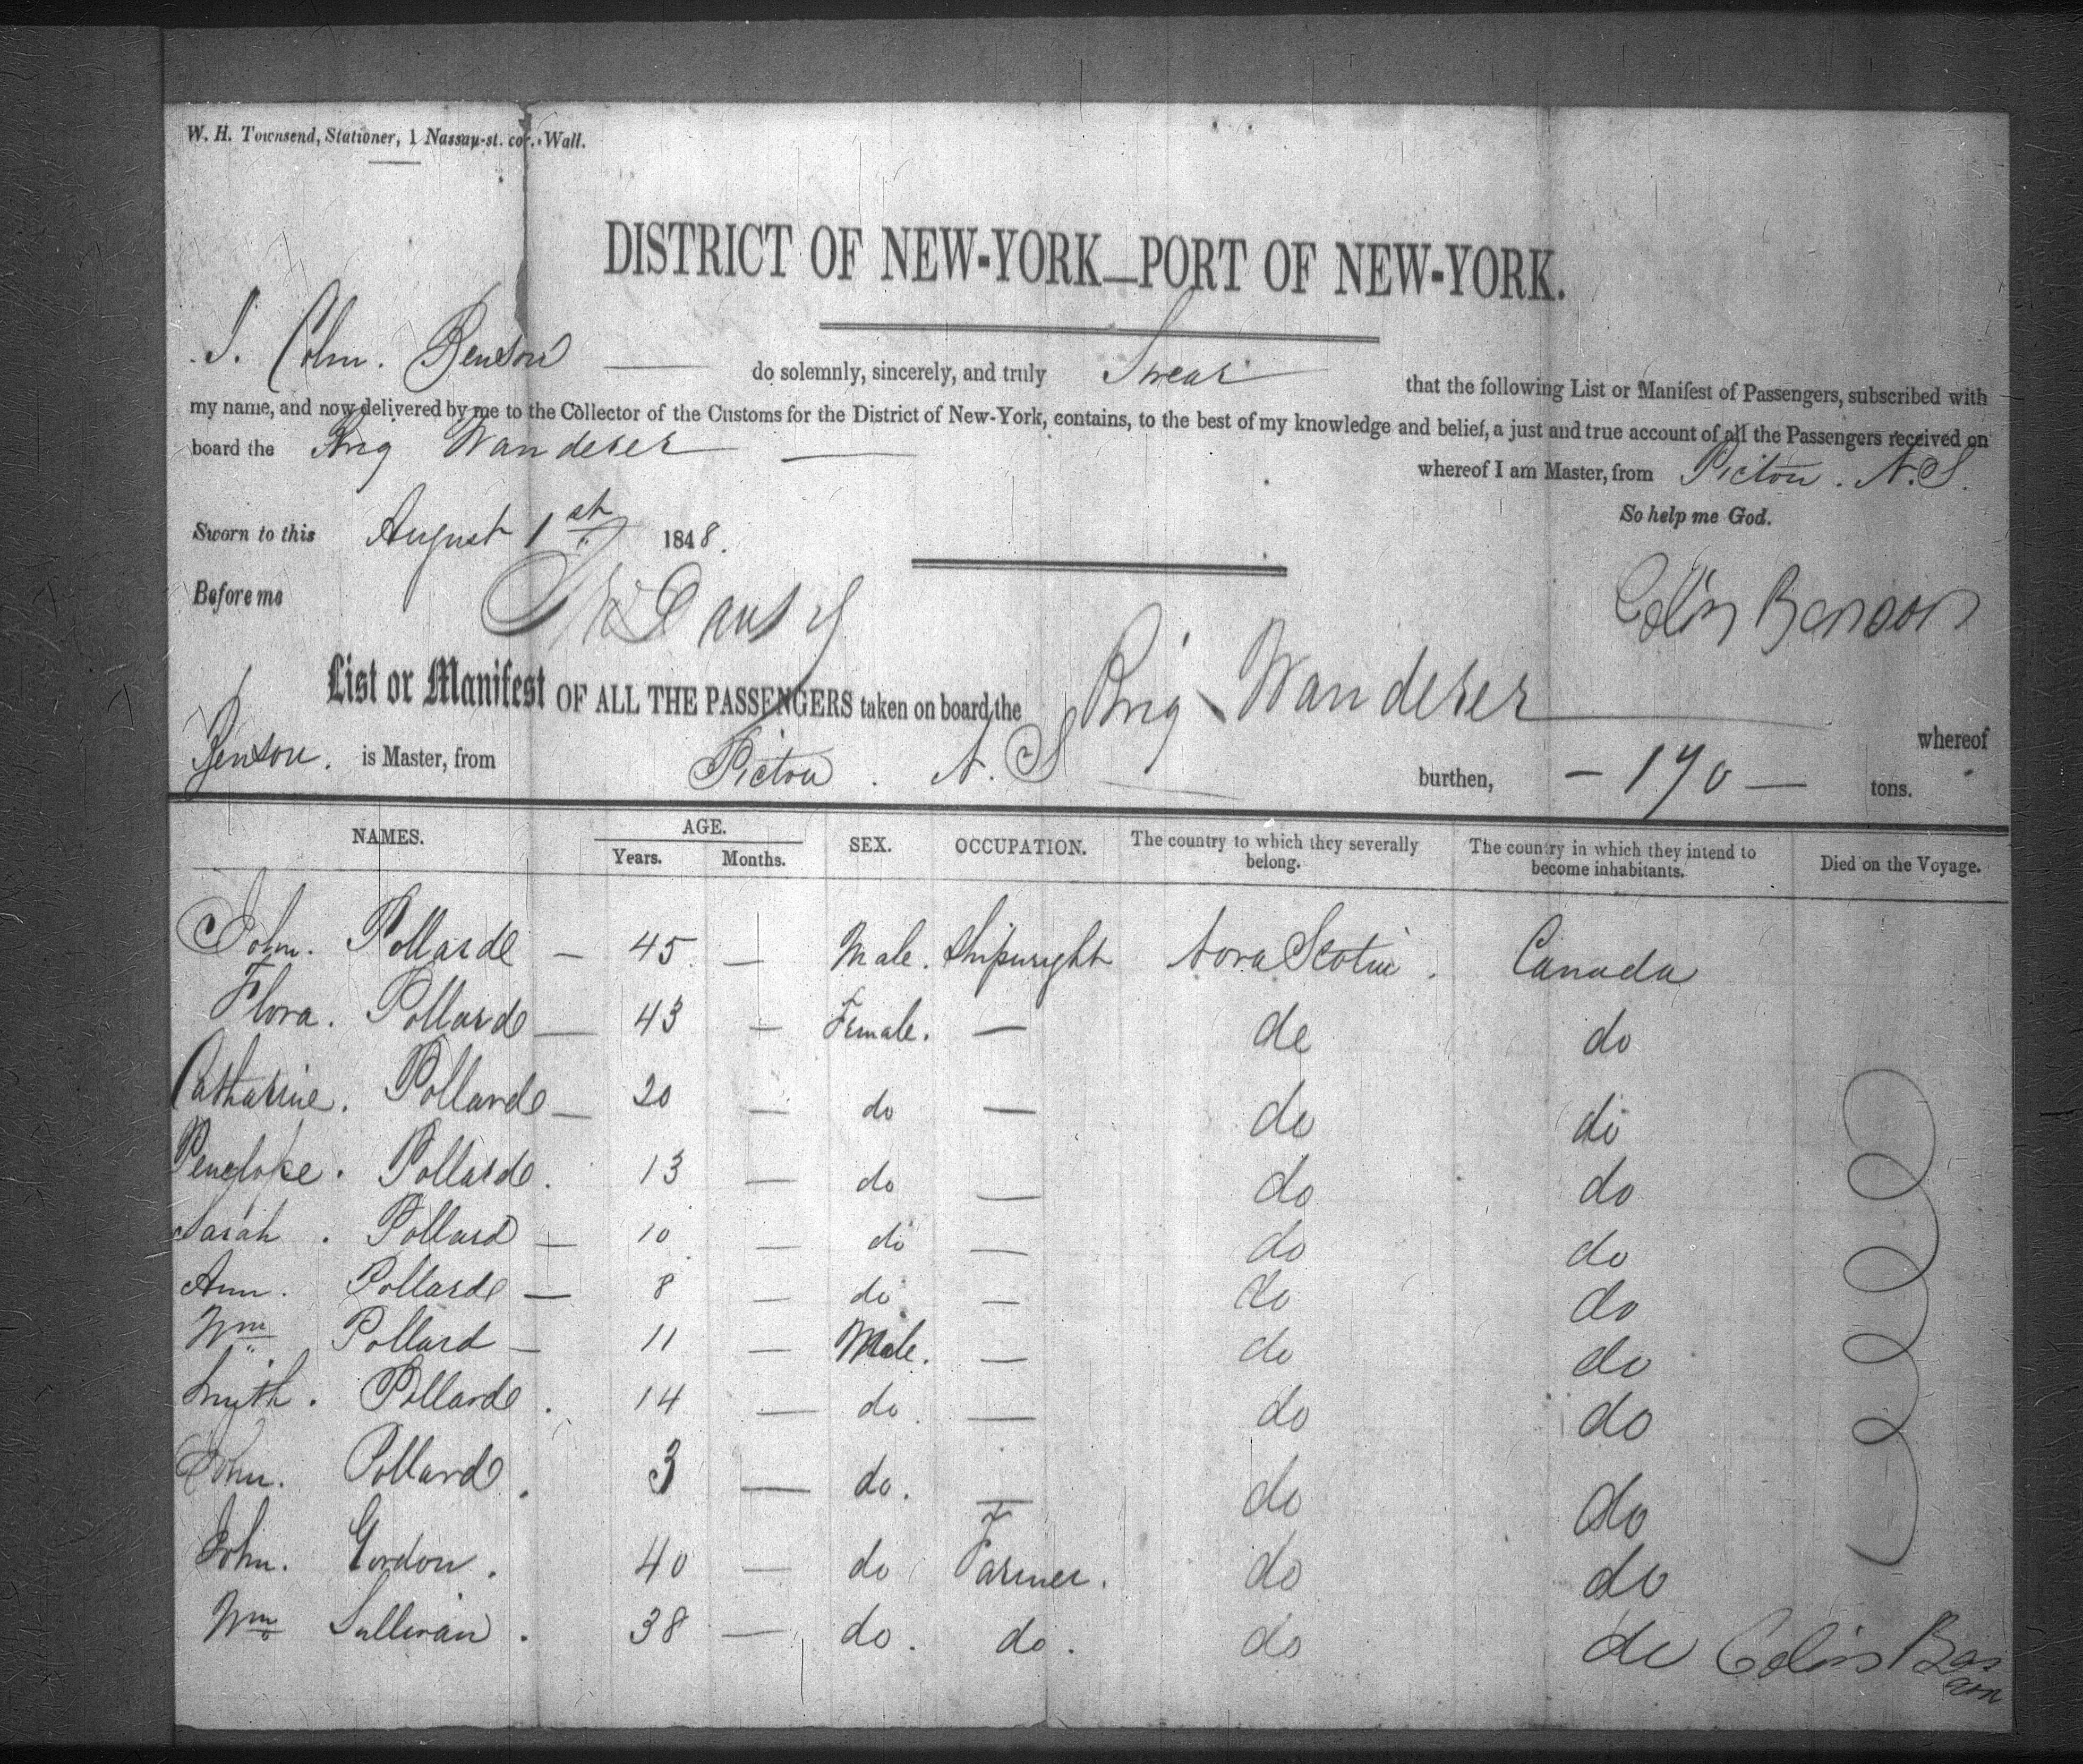 W. H. Townsend, Stationer, 1 Nassau-st. cor. Wall.
DISTRICT OF NEW-YORK—PORT OF NEW-YORK.
I. Colin. Benson — do solemnly, sincerely, and truly Swear that the following List or Manifest of Passengers, subscribed with
my name, and now delivered by me to the Collector of the Customs for the District of New-York, contains, to the best of my knowledge and belief, a just and true account of all the Passengers received on
board the Brig Wanderer — whereof I am Master, from Pictou. N.S.
So help me God.
Sworn to this August 1st 1848.
Before me
Colin Benson
List or Manifest OF ALL THE PASSENGERS taken on board the Brig Wanderer whereof
Benson. is Master, from Pictou. N. S burthen, — 170 — tons.
NAMES. AGE. SEX. OCCUPATION. The country to which they severally belong. The country in which they intend to become inhabitants. Died on the Voyage.
Years. Months.
John. Pollarde — 45 — Male. Shipwright Nova Scotia. Canada
Flora. Pollarde — 43 — Female. — do do
Catharine. Pollarde — 20 — do — do do
Penelope. Pollarde. 13 — do — do do
Sarah. Pollard — 10 — do — do do
Ann. Pollarde — 8 — do — do do
Wm Pollard — 11 — Male. — do do
Smith. Pollarde. 14 — do — do do
John. Pollarde. 3 — do. — do do
John. Gordon. 40 — do Farmer. do do
Wm Sullivan. 38 — do. do. do do
Colin Benson